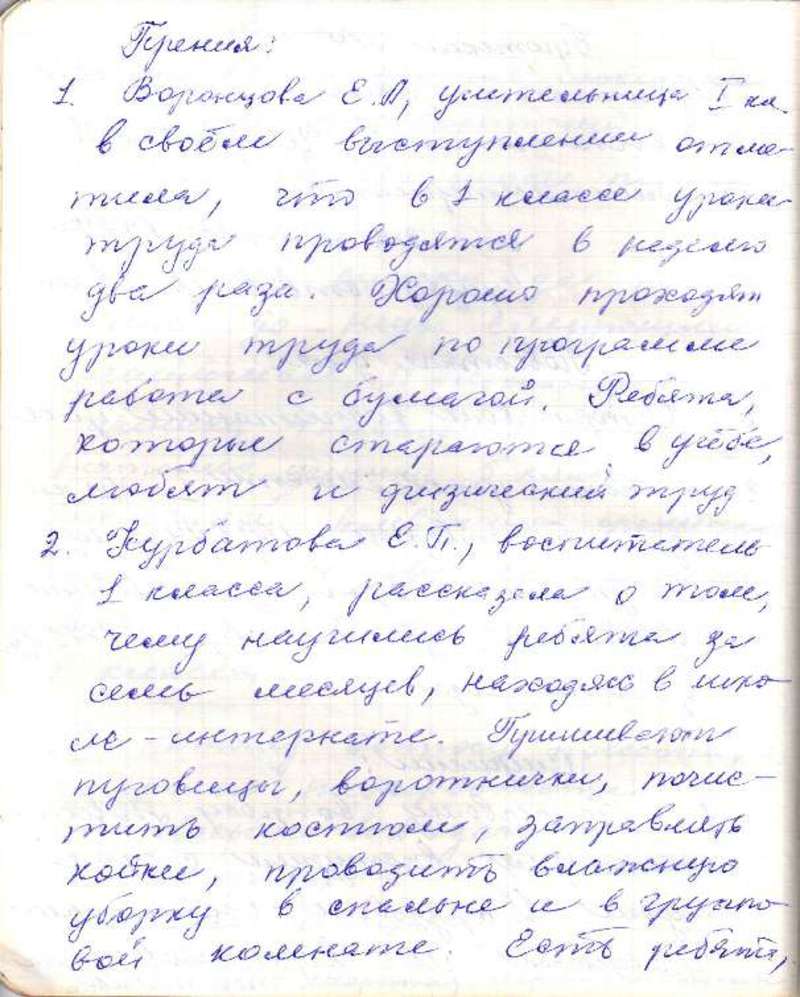 Прения:
1. Воронцова Е.А, учительница I кл.
в своём выступлении отме-
тила, что в 1 классе уроки
труда проводятся в неделю
два раза. Хорошо проходят
уроки труда по программе
работа с бумагой. Ребята,
которые стараются в учёбе,
любят и физический труд
2. Курбатова Е.П., воспитатель
1 класса, рассказала о том,
чему научились ребята за
семь месяцев, находясь в шко-
ле-интернате. Пришивают
пуговицы, воротнички, почис-
тить костюм, заправлять
койки, проводить влажную
уборку в спальне и в группо-
вой комнате. Есть ребята,